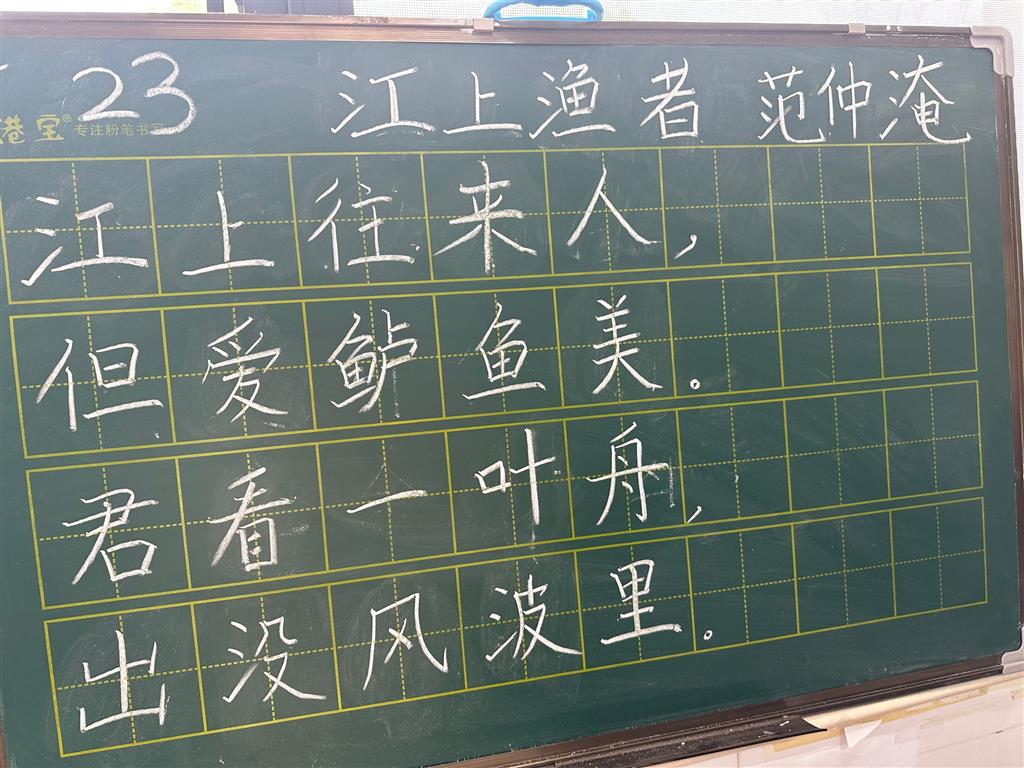 23 江上渔者 范仲淹
巷宝® 专注粉笔书写
江上往来人，
但爱鲈鱼美。
君看一叶舟，
出没风波里。